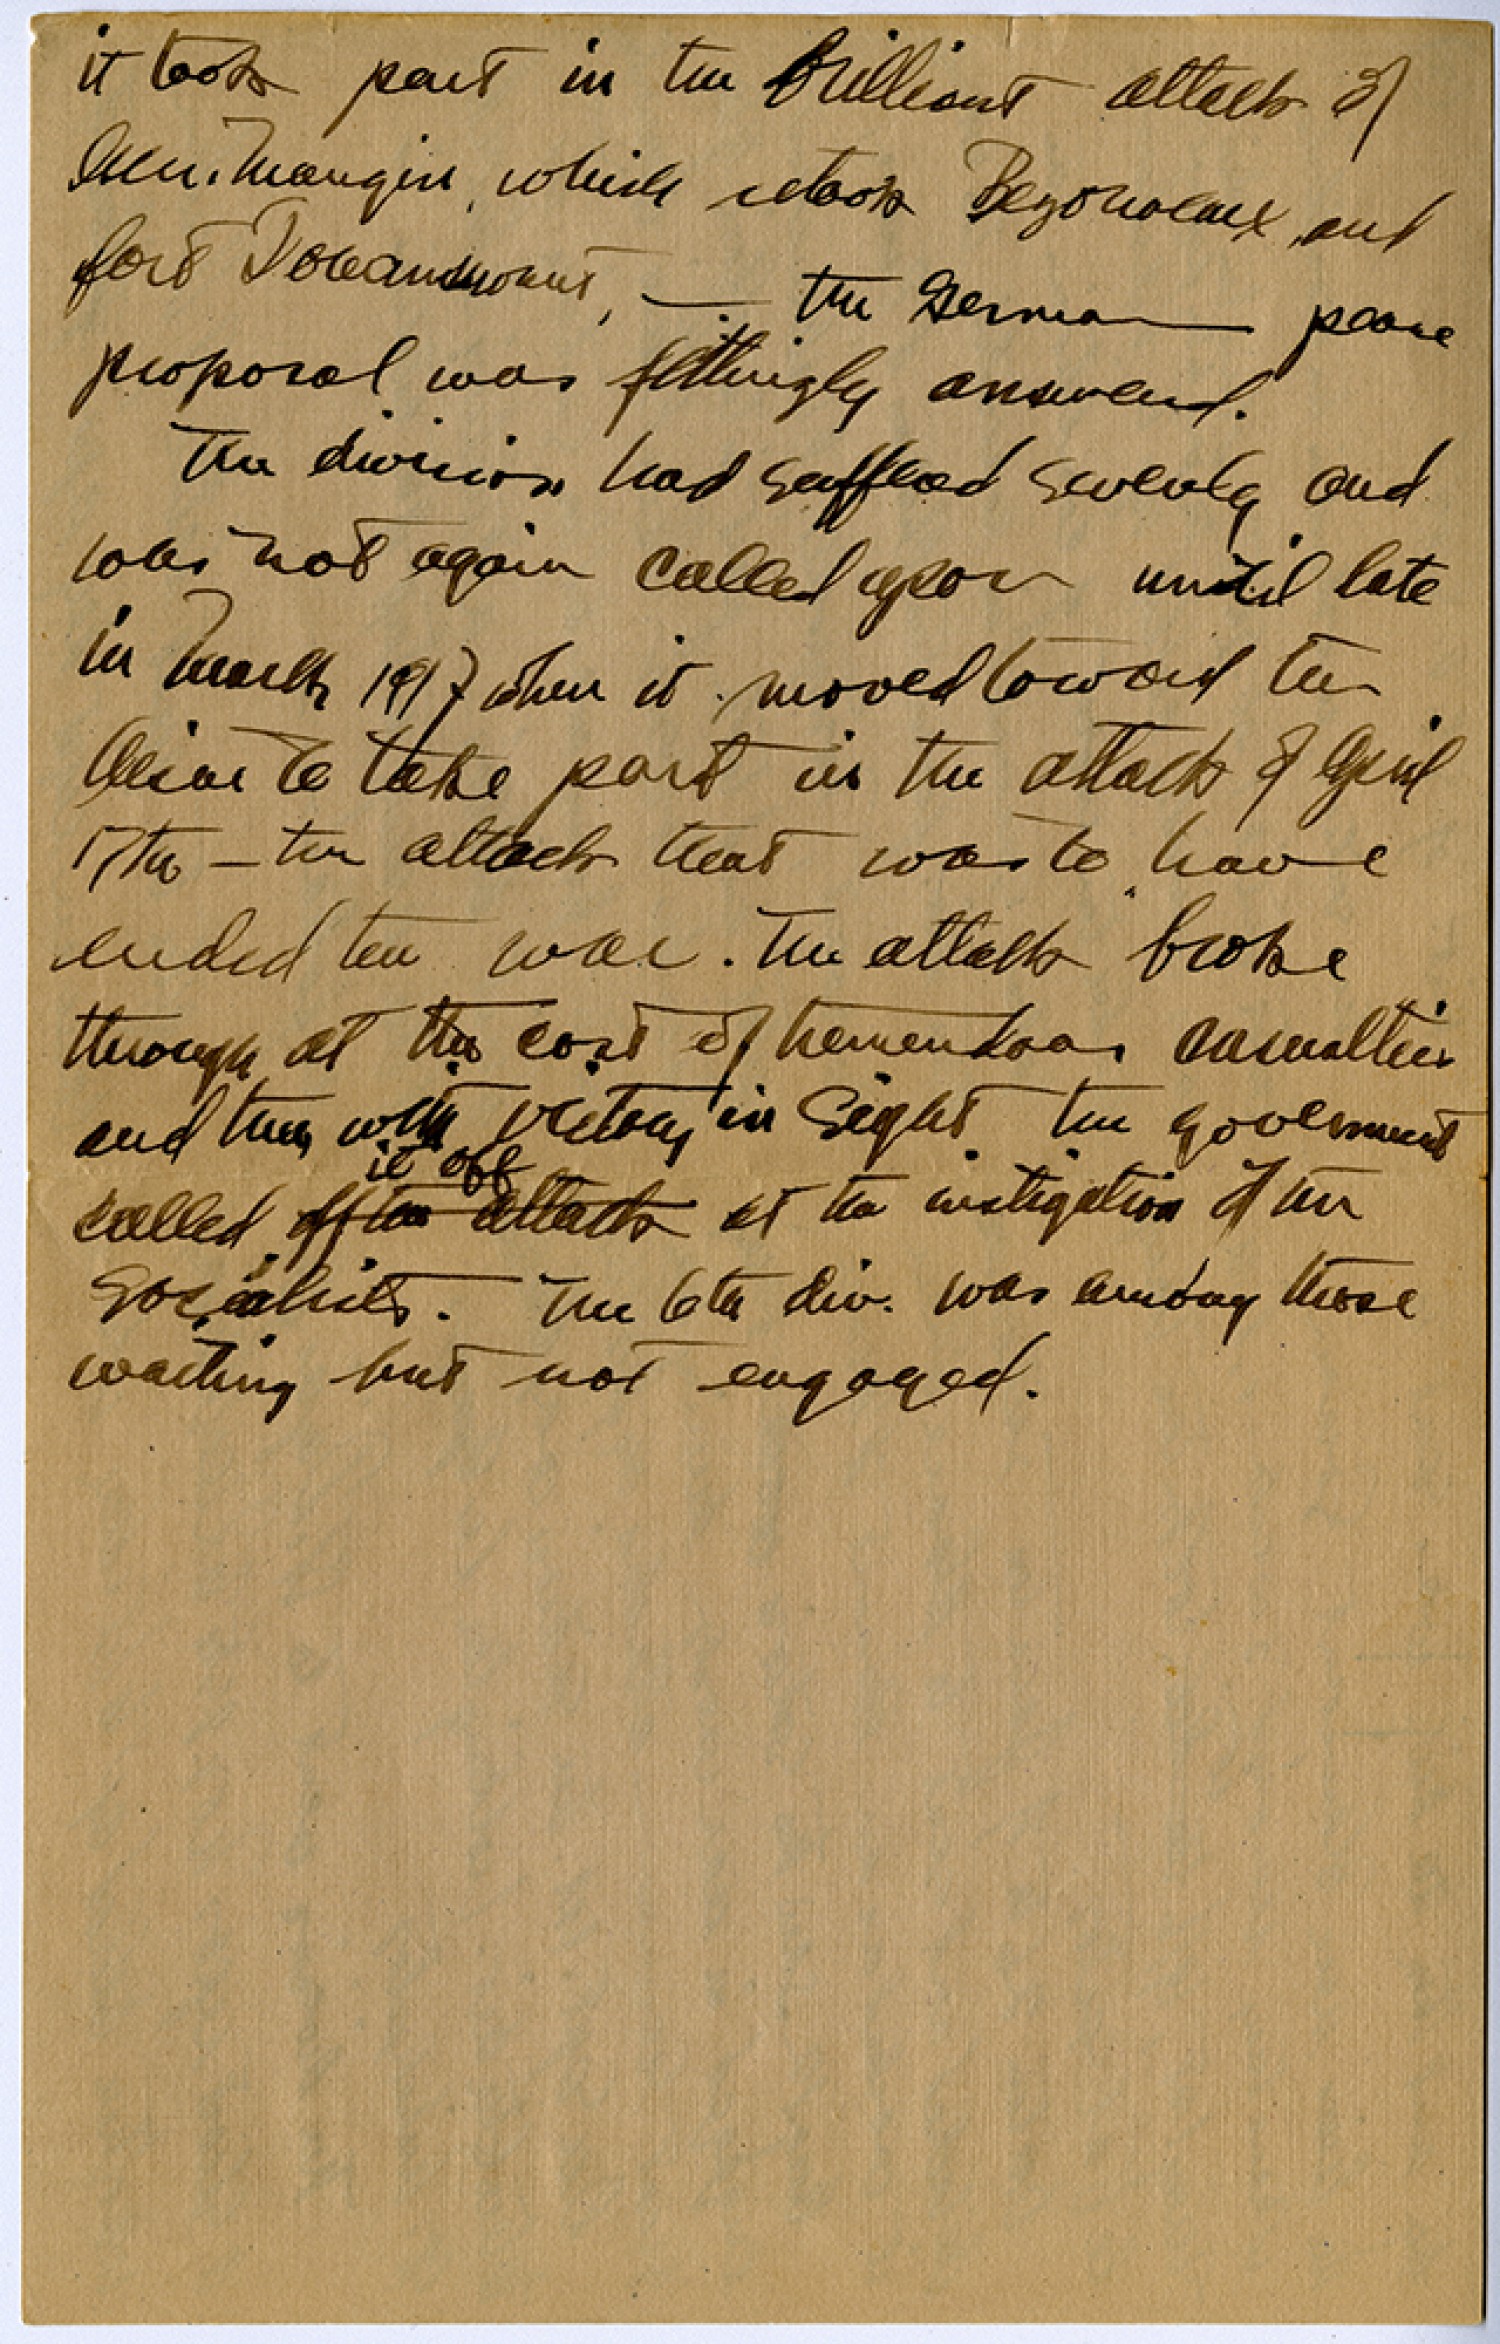 it took part in the brilliant attack of
Gen. Mangin, which retook Bezonvaux and
fort Douaumont, — the German peace
proposal was fittingly answered.
The division had suffered severely and
was not again called upon until late
in March 1917 when it moved toward the
Aisne to take part in the attack of April
17th — the attack that was to have
ended the war. The attack broke
through at the cost of tremendous casualties
and then with victory in sight the government
it off
called off the attack at the instigation of the
Socialists. The 6th div. was among those
waiting but not engaged.